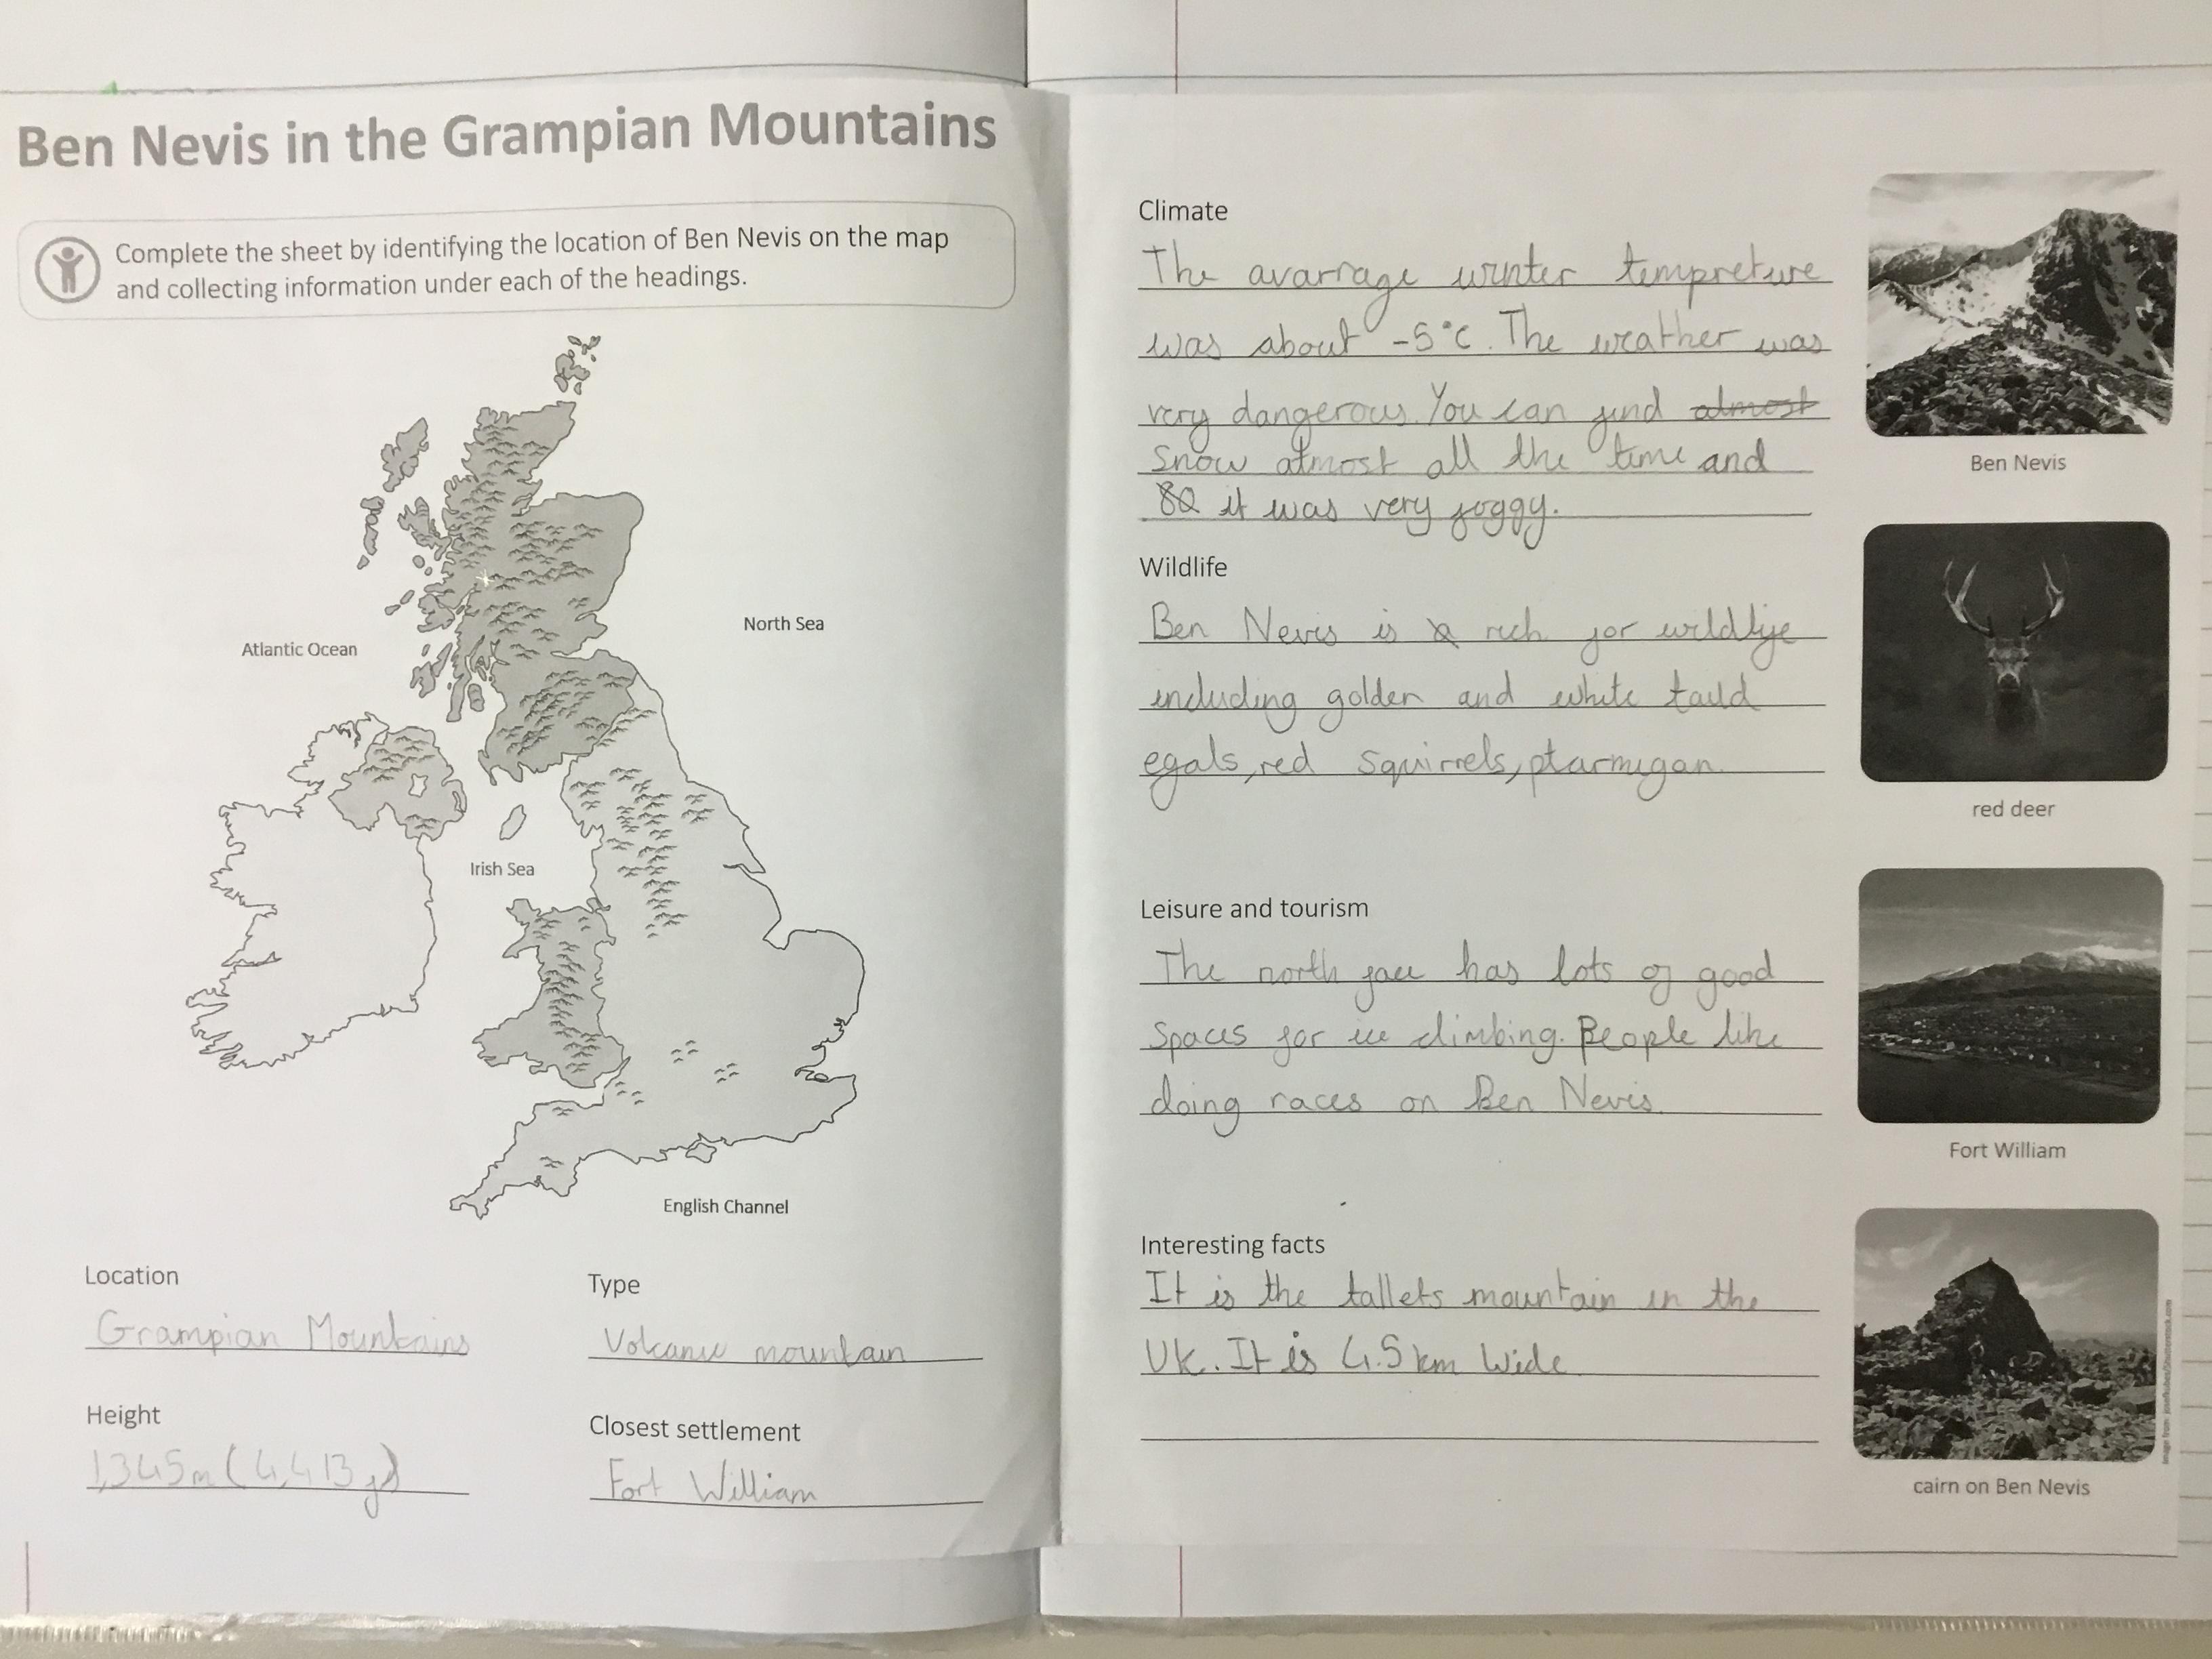 Ben Nevis in the Grampian Mountains
Complete the sheet by identifying the location of Ben Nevis on the map
and collecting information under each of the headings.
Atlantic Ocean
North Sea
Irish Sea
English Channel
Location
Grampian Mountains
Type
Volcanic mountain
Height
1,345m (4,413 ft)
Closest settlement
Fort William
Climate
The avarrage winter tempreture
was about -5°c. The weather was
very dangerous. You can find almost
Snow almost all the time and
it was very foggy.
Ben Nevis
Wildlife
Ben Nevis is a rich for wildlife
including golden and white taild
egals, red squirrels, ptarmigan.
red deer
Leisure and tourism
The north face has lots of good
spaces for ice climbing. People like
doing races on Ben Nevis.
Fort William
Interesting facts
It is the tallets mountain in the
Uk. It is 4.5 km Wide
cairn on Ben Nevis